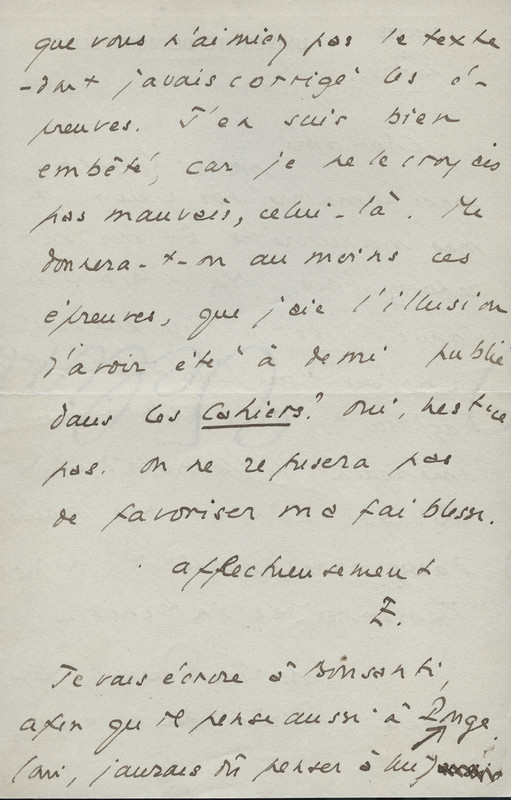 que vous n'aimiez pas le texte
-dont j'avais corrigé les é-
preuves. J'en suis bien
embêté, car je ne le croyais
pas mauvais, celui-là. Me
donnera-t-on au moins ces
épreuves, que j'aie l'illusion
d'avoir été à demi publié
dans les Cahiers? Oui, n'est-ce
pas. On ne refusera pas
de favoriser ma faiblesse.
affectueusement
Z.
Je vais écrire à Bonsanti,
afin qu'il pense aussi à
(oui, j'aurais dû penser à lui)